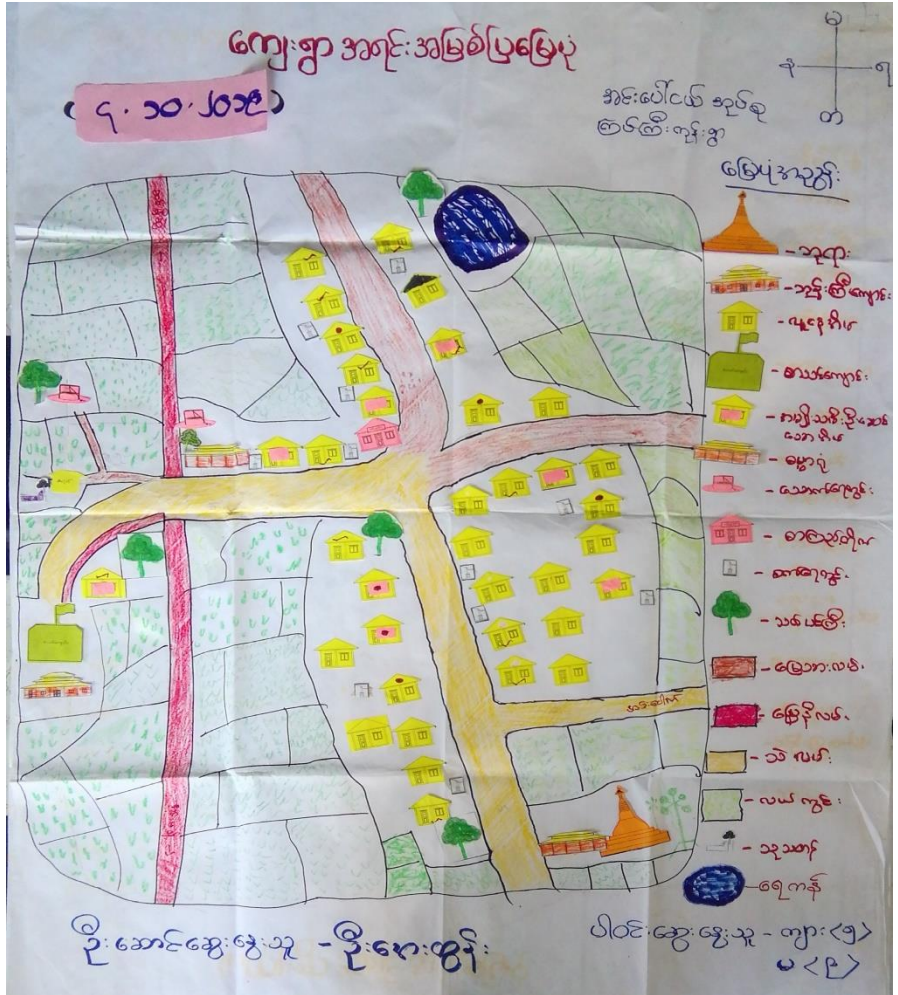 ကျေးရွာ အရင်းအမြစ်ပြမြေပုံ
(၄.၁၀.၂၀၁၉)
မ
န
ရ
တ
အင်းပေါငယ် အုပ်စု
ကြပ်ကြီးကုန်းရွာ
မြေပုံအညွှန်း
- ဘုရား
- ဘုန်းကြီးကျောင်း
- လူနေအိမ်
- စာသင်ကျောင်း
- အမျိုးသမီးဦးဆောင်သောအိမ်
- ဓမ္မာရုံ
- သောက်ရေတွင်း
- စာကြည့်တိုက်
- စက်ရေတွင်း
- သစ်ပင်ကြီး
- မြေသားလမ်း
- မြေနီလမ်း
- သဲလမ်း
- လယ်ကွင်း
- သုသာန်
- ရေကန်
ဦးဆောင်ဆွေးနွေးသူ - ဦးအေးထွန်း
ပါဝင်ဆွေးနွေးသူ - ကျား<၅>
မ<၉>